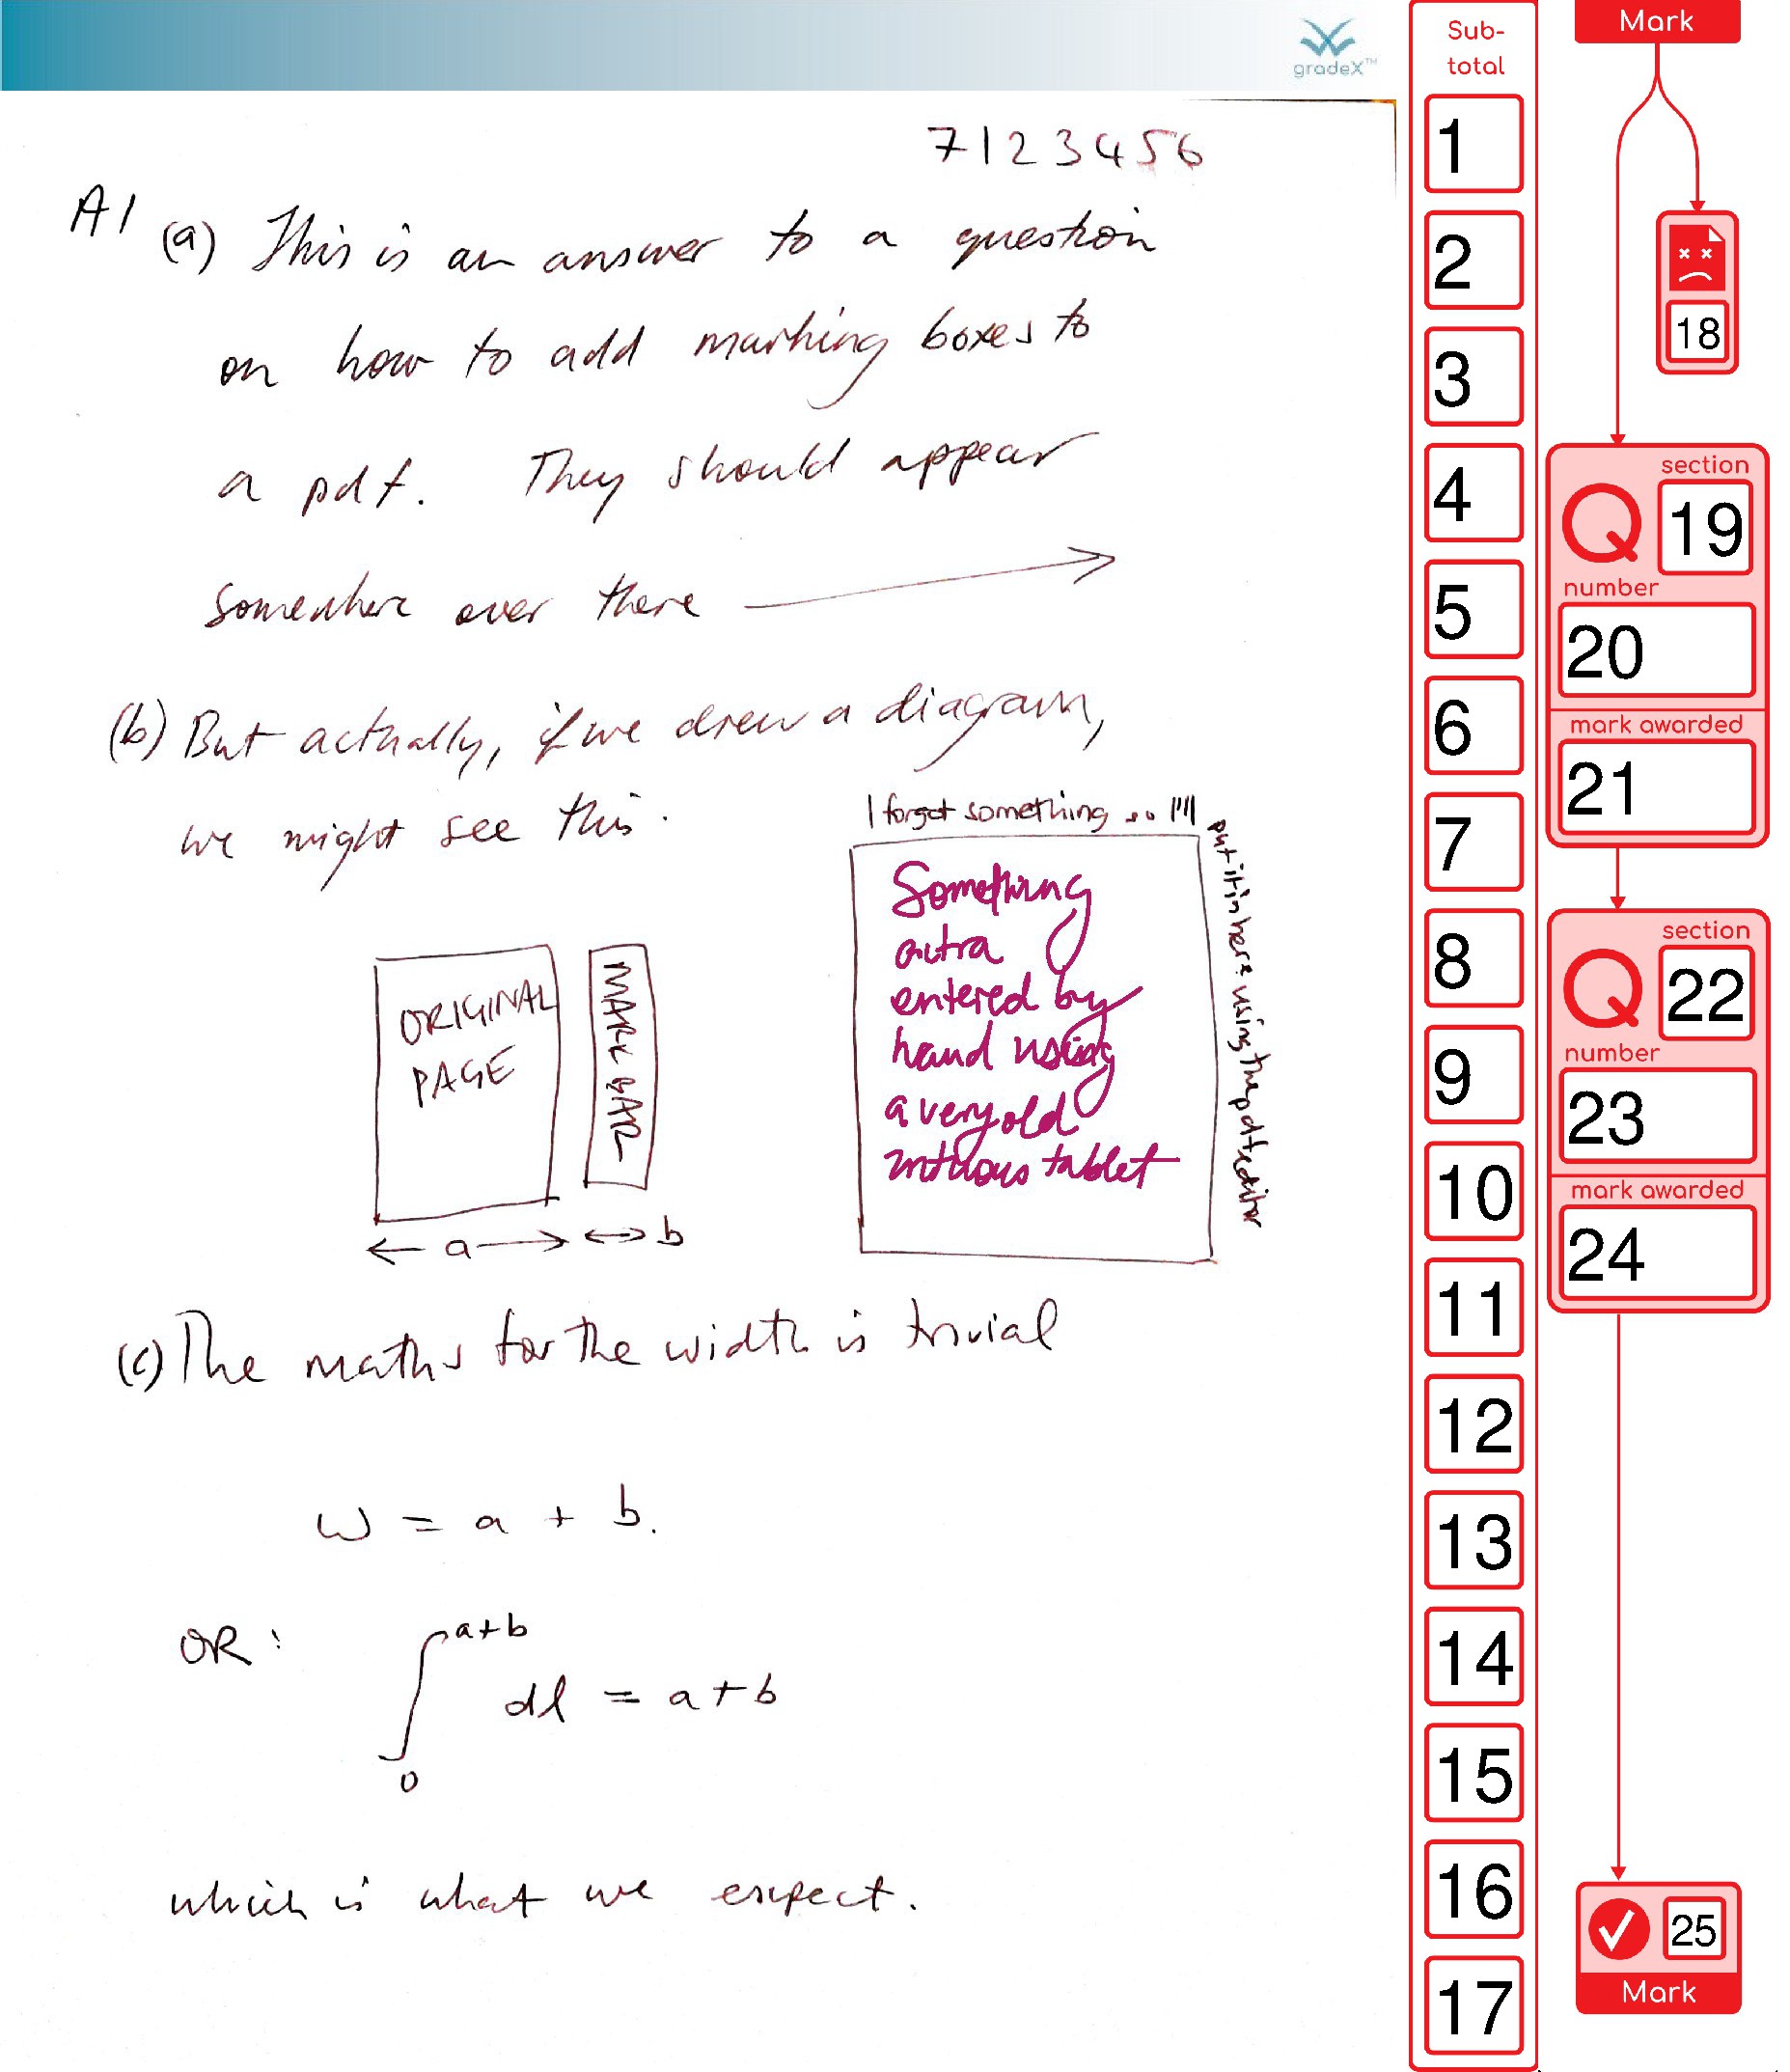 gradeX™
7123456
A1 (a) This is an answer to a question
on how to add marking boxes to
a pdf. They should appear
somewhere over there
(b) But actually, if we drew a diagram,
we might see this.
I forgot something so I'll
put it in here using the pdf editor
Something
extra
entered by
hand using
a very old
intuous tablet
ORIGINAL
PAGE
MARK BAR
a
b
(c) The maths for the width is trivial
w = a + b.
OR: ∫₀ᵃ⁺ᵇ dl = a+b
which is what we expect.
Sub-
total
1
2
3
4
5
6
7
8
9
10
11
12
13
14
15
16
17
Mark
18
section
Q 19
number
20
mark awarded
21
section
Q 22
number
23
mark awarded
24
25
Mark